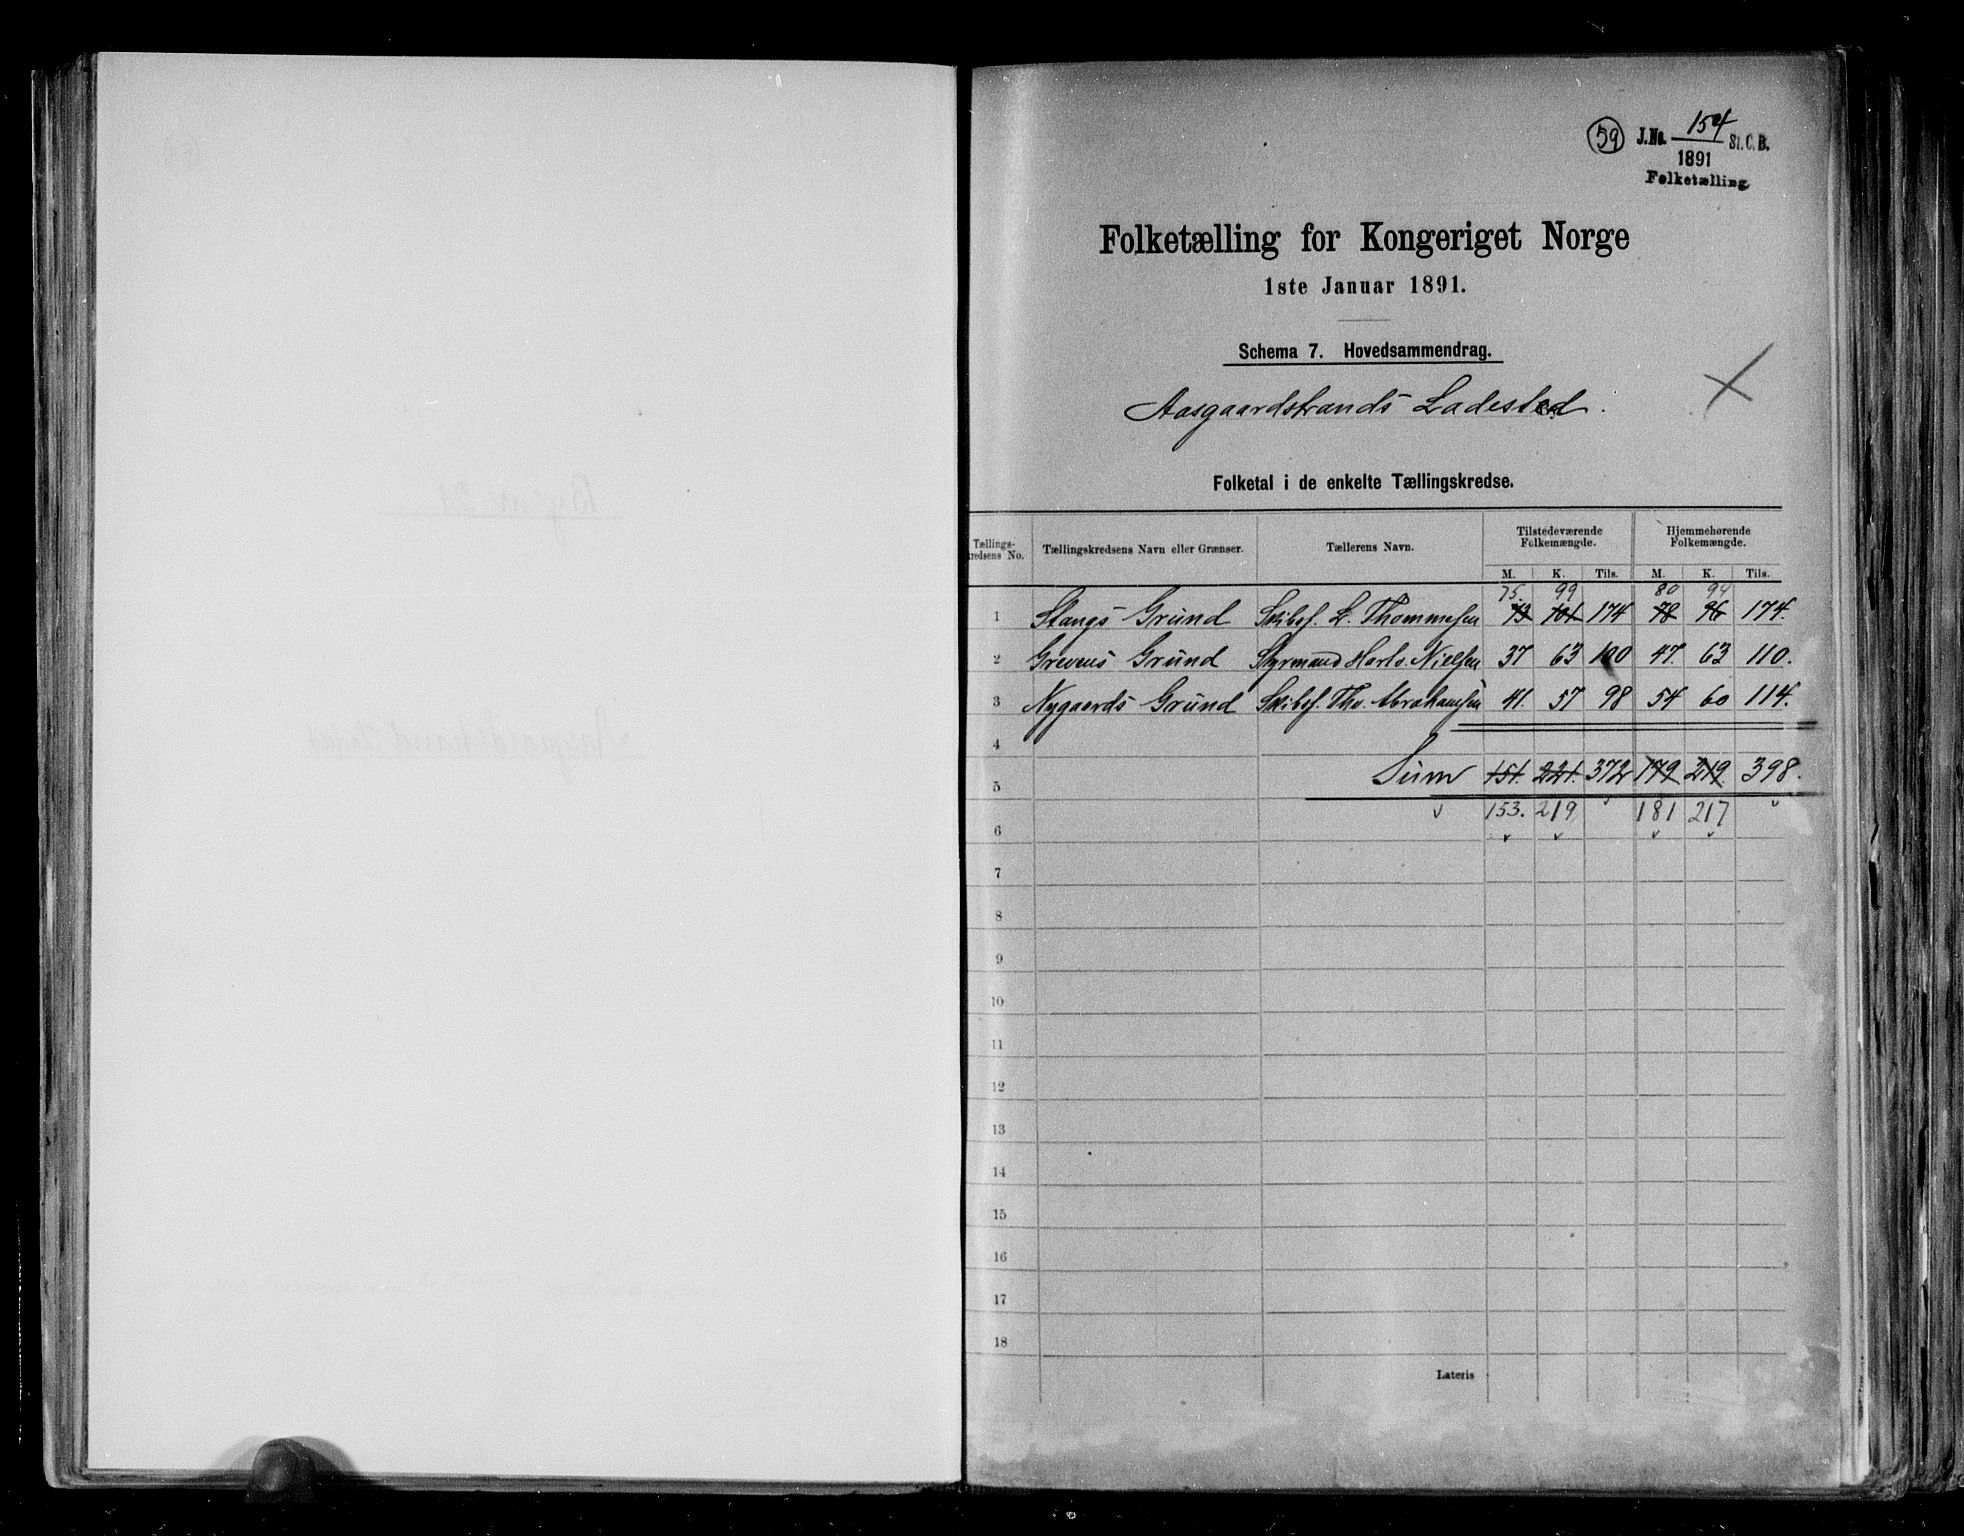 59 J.No. 154 St.C.B.
1891
Folketælling
Folketælling for Kongeriget Norge
1ste Januar 1891.
Schema 7. Hovedsammendrag.
Aasgaardstrands Ladested.
Folketal i de enkelte Tællingskredse.
Tællings-kredsens No. Tællingskredsens Navn eller Grænser. Tællerens Navn. Tilstedeværende Folkemængde. Hjemmehørende Folkemængde.
M. K. Tils. M. K. Tils.
75. 99 80 94
1 Stangs Grund Skibsf. L. Thommesen 73 101 174 78 96 174.
2 Grevens Grund Styrmand Nielsen 37 63 100 47. 63 110.
3 Nygaards Grund Skibsf. Thv. Abrahamsen 41. 57 98 54 60 114.
4
5 Sum 151. 221. 372 179 219. 398.
6 153. 219 181 217
7
8
9
10
11
12
13
14
15
16
17
18
Lateris